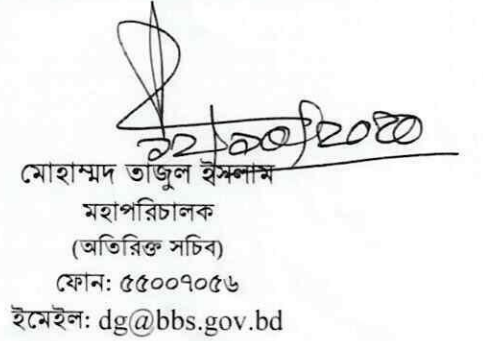 মোহাম্মদ তাজুল ইসলাম
মহাপরিচালক
(অতিরিক্ত সচিব)
ফোন: ৫৫০০৭০৫৬
ইমেইল: dg@bbs.gov.bd